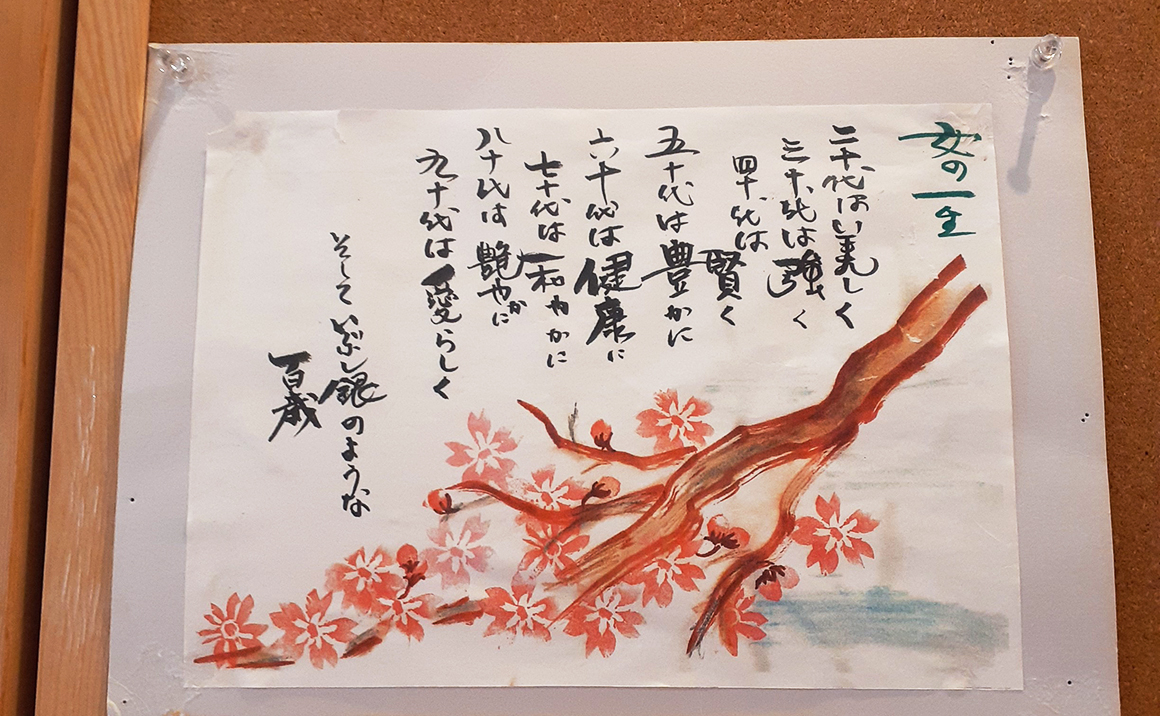 女の一生
二十代は美しく
三十代は強く
四十代は賢く
五十代は豊かに
六十代は健康に
七十代は和やかに
八十代は艶やかに
九十代は愛らしく
そして いぶし銀のような
百歳